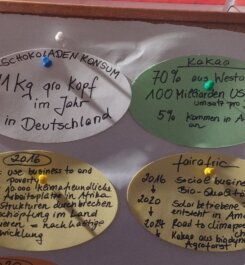 SCHOKOLADEN KONSUM
11 Kg pro Kopf
im Jahr
in Deutschland
Kakao
70% aus Westa
100 Milliarden US
umsatz pro
5% kommen in A
an
2016
use business to end
Poverty
10.000 klimafreundliche
Arbeitsplätze in Afrika
Strukturen durchbrechen
schöpfung im Land
ieren → nachhaltige
wicklung
fairafric
2016 Social business
Bio-Qualität
2020 Solar betriebene
entsteht in
2014 Road to climapos
Kakao aus biodyn
Agroforst